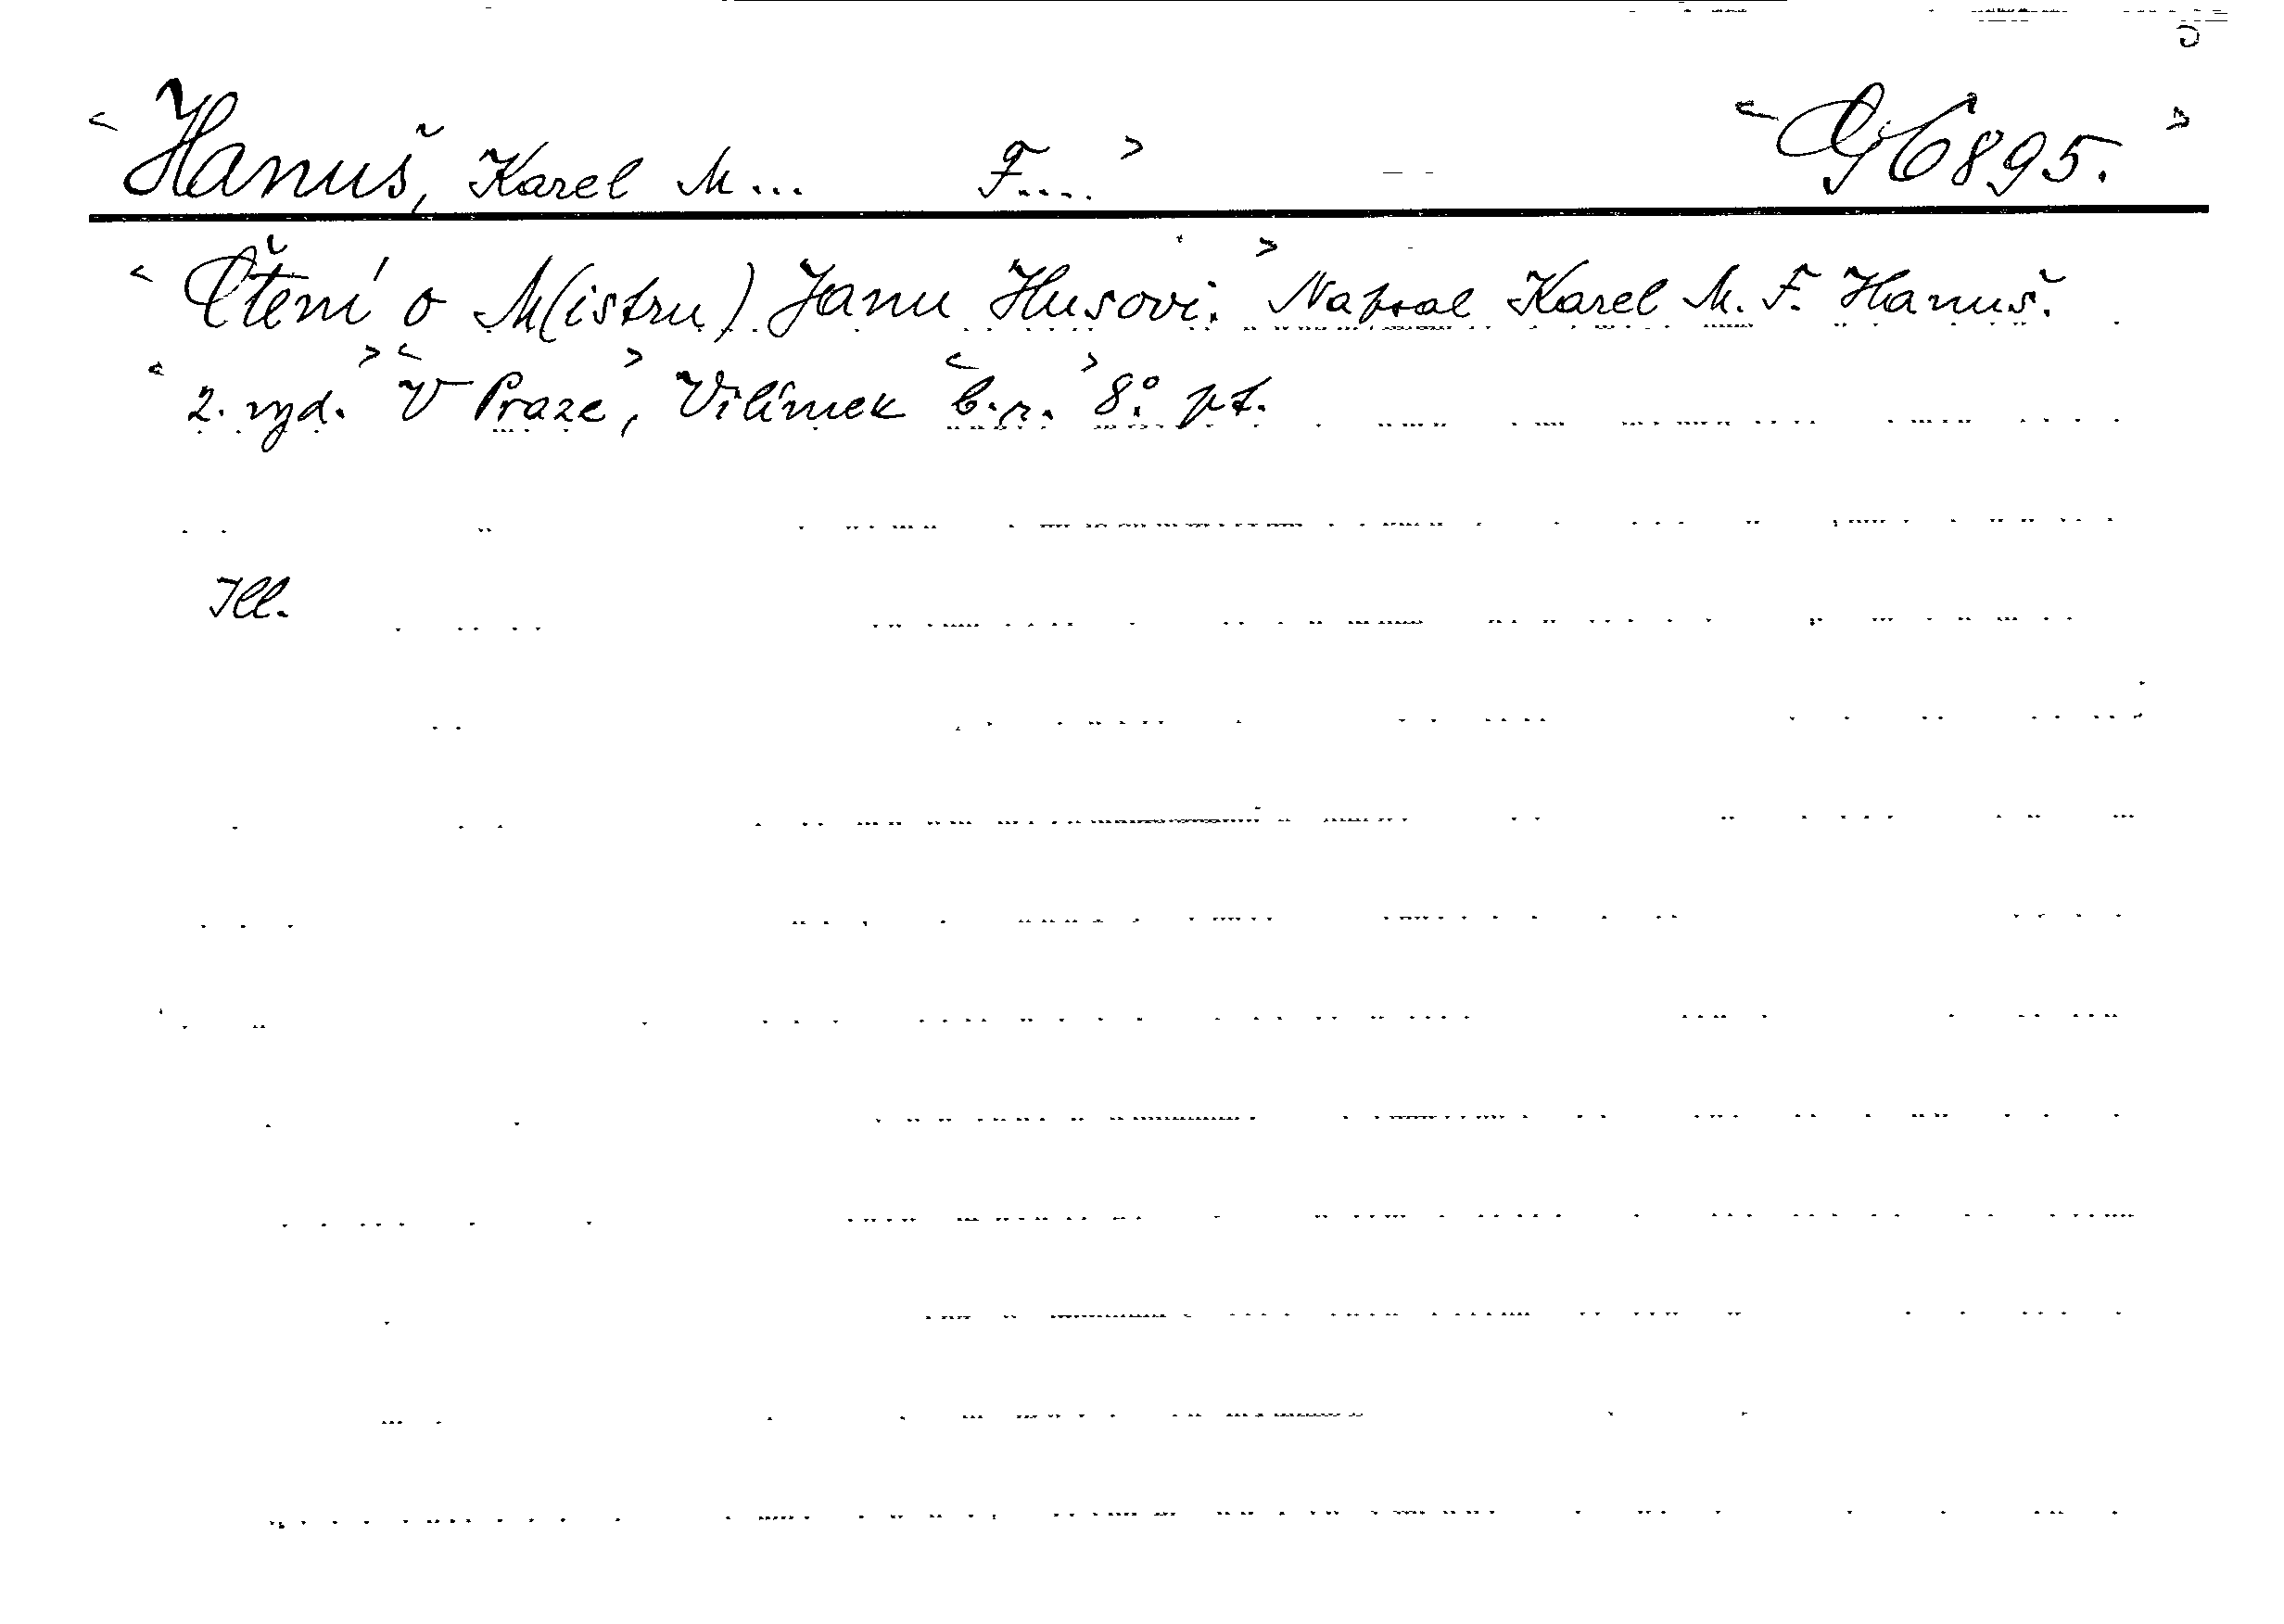 <Hanuš, Karel M... F....> <Gf 6895.>
<Čtení o M(istru) Janu Husovi.> Napsal Karel M. F. Hanuš.
<2. vyd.> <V Praze,> Vilímek <b.r.> 8°. pt.
Ill.